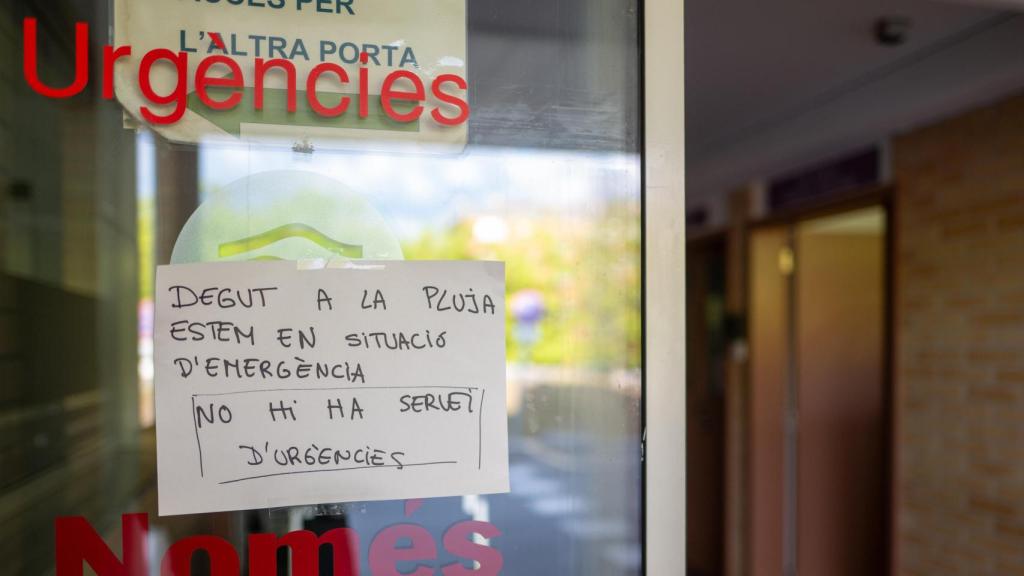 ACCÉS PER
L'ALTRA PORTA
Urgències
DEGUT A LA PLUJA
ESTEM EN SITUACIÓ
D'EMERGÈNCIA
NO HI HA SERVEI
D'URGÈNCIES
Només